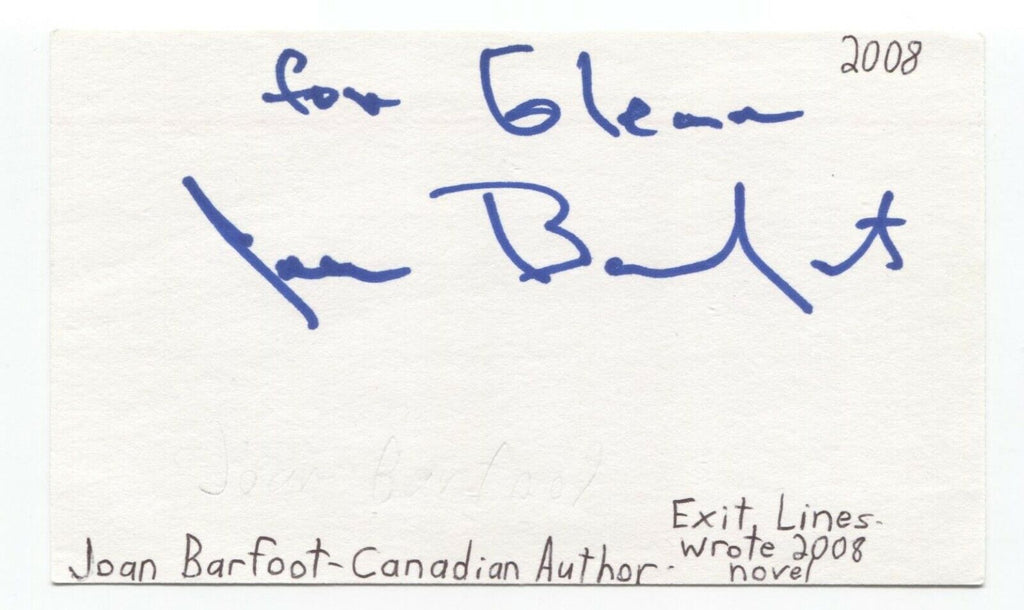 2008
for Glenn
Joan Barfoot
Joan Barfoot
Exit Lines-
wrote 2008
novel
Joan Barfoot-Canadian Author.